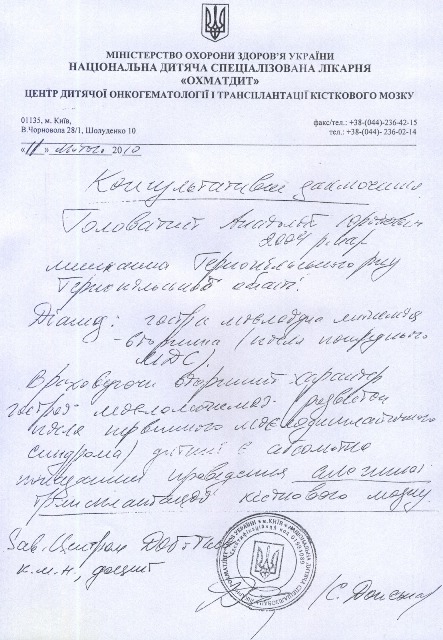 МІНІСТЕРСТВО ОХОРОНИ ЗДОРОВ'Я УКРАЇНИ
НАЦІОНАЛЬНА ДИТЯЧА СПЕЦІАЛІЗОВАНА ЛІКАРНЯ
«ОХМАТДИТ»
ЦЕНТР ДИТЯЧОЇ ОНКОГЕМАТОЛОГІЇ І ТРАНСПЛАНТАЦІЇ КІСТКОВОГО МОЗКУ
01135, м. Київ,
В.Чорновола 28/1, Шолуденко 10
факс/тел.: +38-(044)-236-42-15
тел.: +38-(044)-236-02-14
«11» лютого 2010
Консультативне заключення
Головатий Анатолій Юрійович
2004 р.нар
мешканця Тернопільського р-ну
Тернопільської області.
Діагноз: гостра мієлоїдна лейкемія
- вторинна (після попереднього
МДС).
Враховуючи вторинний характер
гострої розвиток
після первинного мієлодиспластичного
синдрома) дитині є абсолютно
проведення алогенної
трансплантації кісткового мозку.
Зав. Центром
к.м.н, доцент
(С. Донська)